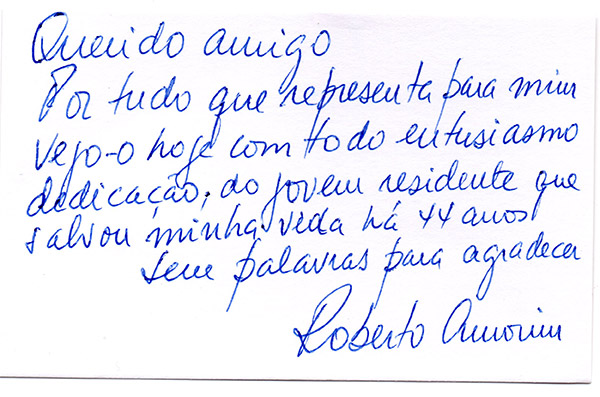 Querido amigo
Por tudo que representa para mim
vejo-o hoje com todo entusiasmo
dedicação, do jovem residente que
salvou minha vida há 44 anos
sem palavras para agradecer
Roberto Amorim